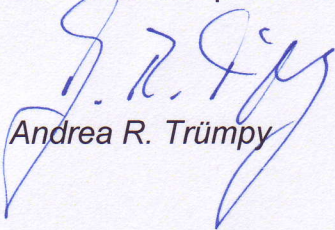 Andrea R. Trümpy